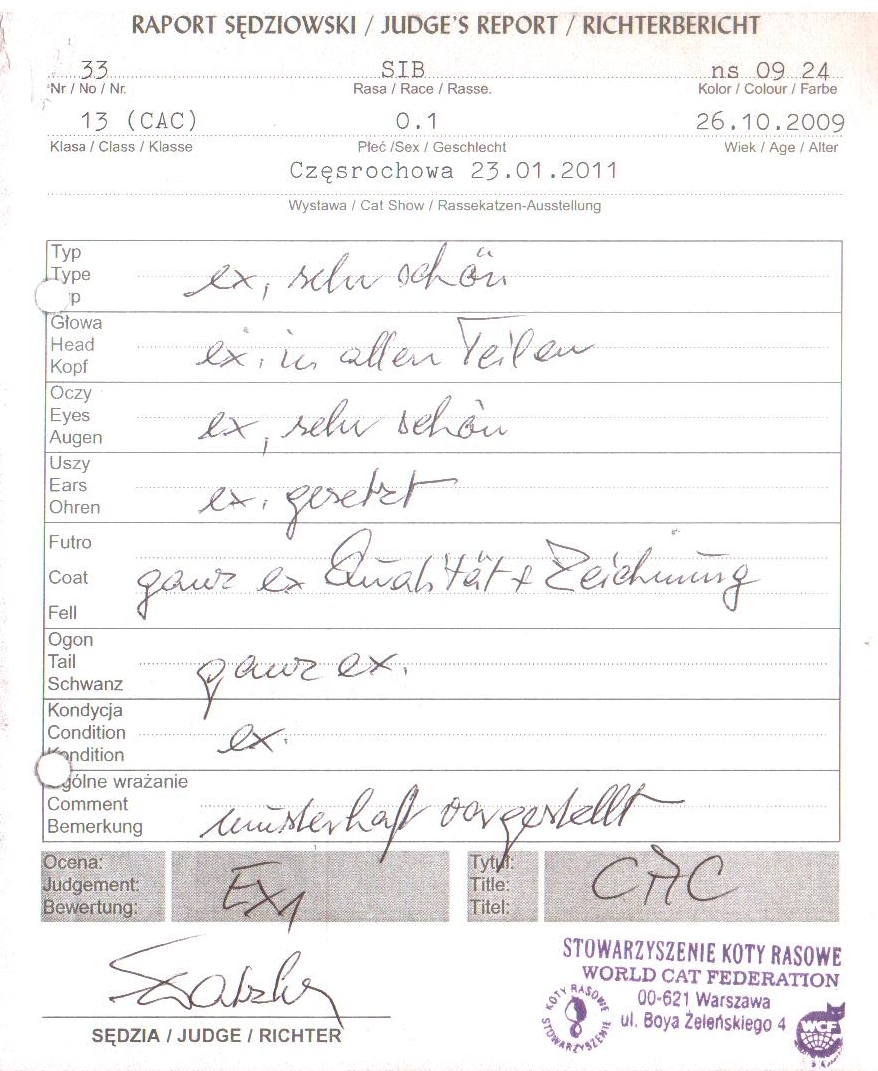 RAPORT SĘDZIOWSKI / JUDGE'S REPORT / RICHTERBERICHT
33 SIB ns 09 24
Nr / No / Nr. Rasa / Race / Rasse. Kolor / Colour / Farbe
13 (CAC) 0.1 26.10.2009
Klasa / Class / Klasse Płeć /Sex / Geschlecht Wiek / Age / Alter
Częsrochowa 23.01.2011
Wystawa / Cat Show / Rassekatzen-Ausstellung
Typ
Type
p
ex, sehr schön
Głowa
Head
Kopf
ex. in allen Teilen
Oczy
Eyes
Augen
ex, sehr schön
Uszy
Ears
Ohren
ex. gesetzt
Futro
Coat
Fell
ganz ex Qualität + Zeichnung
Ogon
Tail
Schwanz
ganz ex.
Kondycja
Condition
Kondition
ex.
gólne wrażanie
Comment
Bemerkung
musterhaft vorgestellt
Ocena:
Judgement:
Bewertung:
EX1
Tytuł:
Title:
Titel:
CAC
SĘDZIA / JUDGE / RICHTER
STOWARZYSZENIE KOTY RASOWE
WORLD CAT FEDERATION
00-621 Warszawa
ul. Boya Żeleńskiego 4
KOTY RASOWE
STOWARZYSZENIE
WCF